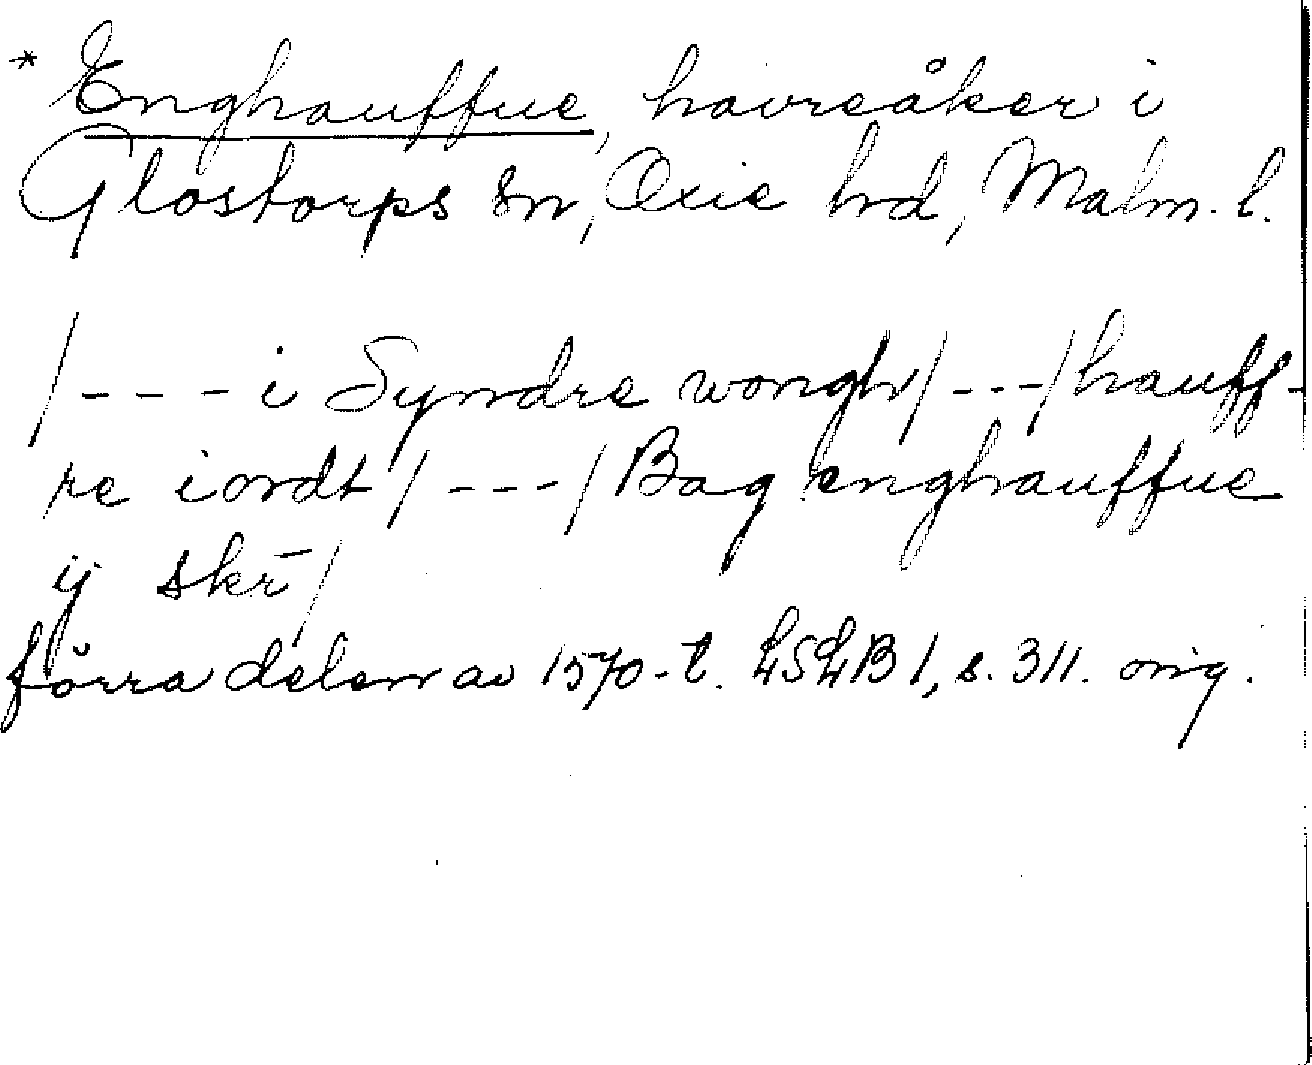 * Enghauffue, havreåker i
Glostorps sn, Oxie hd, Malm. l.
/--- i Syndre wongh/---/hauff-
re iordt/---/Bag enghauffue
ij skr̄/
förra delen av 1570-t. LSLB 1, s. 311. orig.